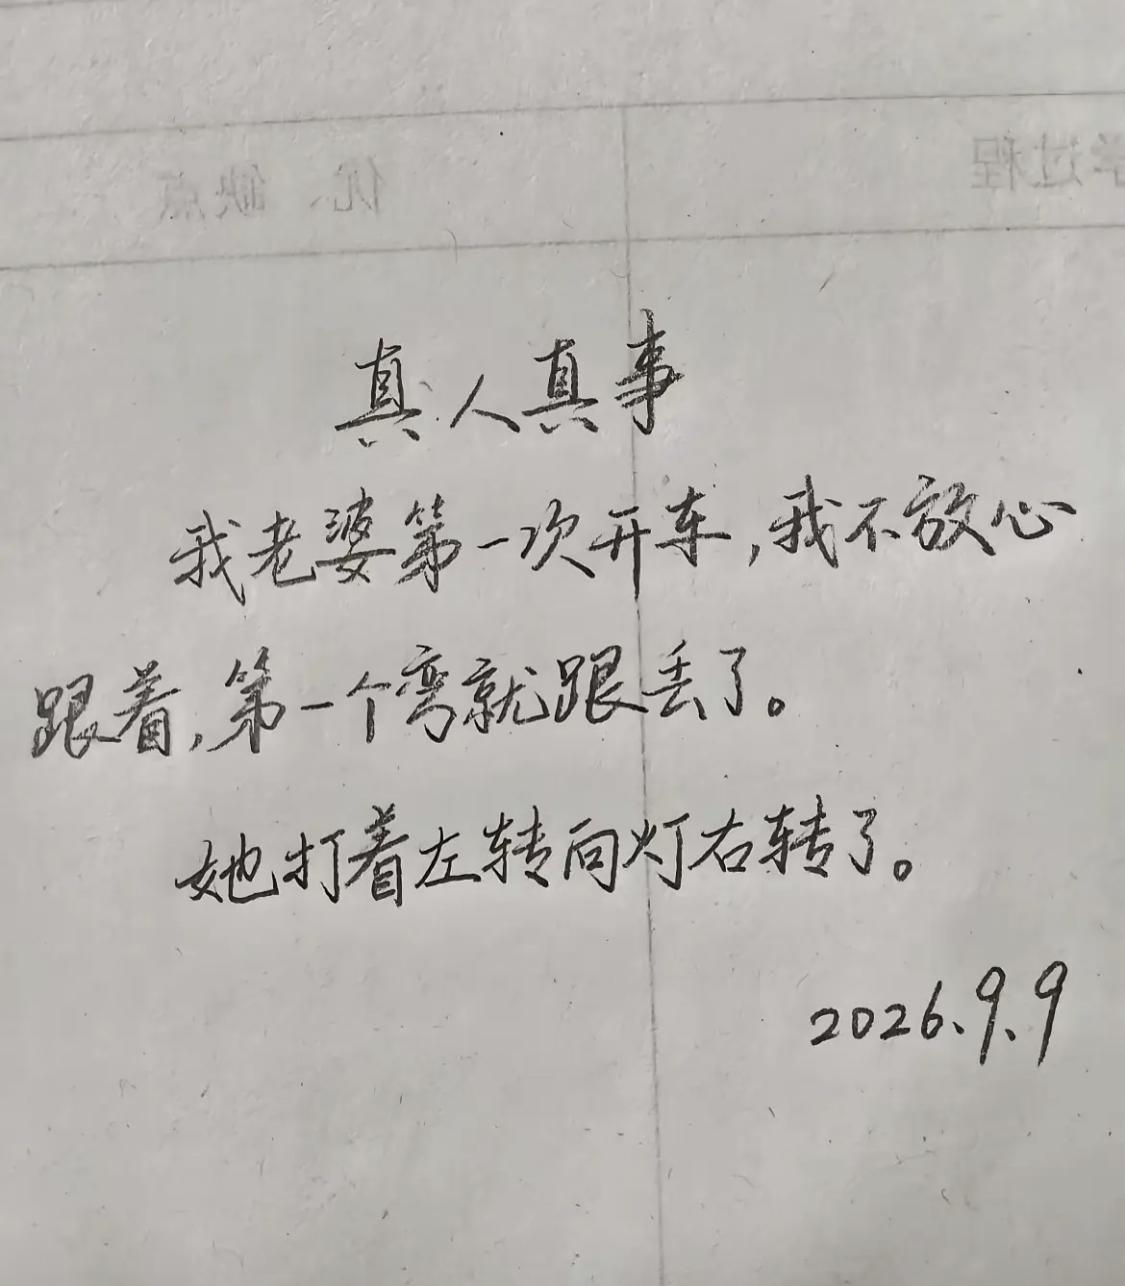 优、缺点
学过程
真人真事
我老婆第一次开车，我不放心
跟着，第一个弯就跟丢了。
她打着左转向灯右转了。
2026.9.9